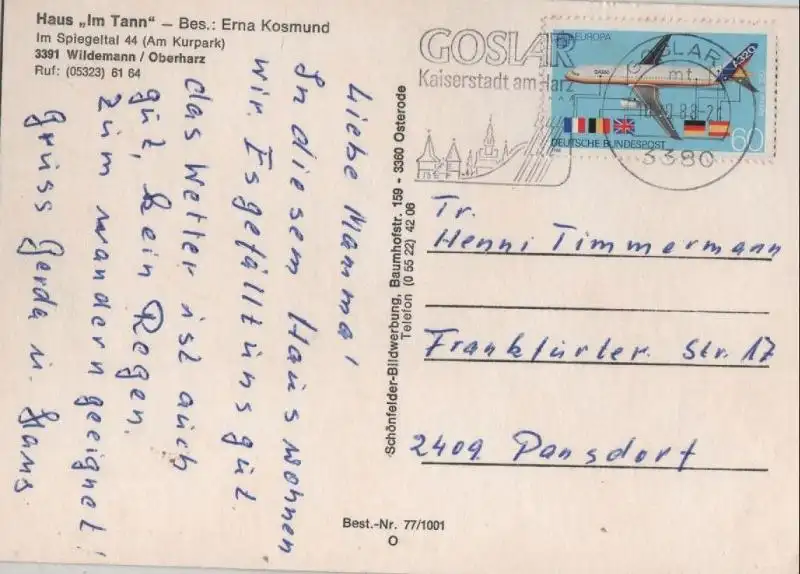 Haus „Im Tann" – Bes.: Erna Kosmund
Im Spiegeltal 44 (Am Kurpark)
3391 Wildemann / Oberharz
Ruf: (05323) 61 64
Liebe Mamma!
In diesem Haus wohnen
wir. Es gefällt uns gut.
das Wetter ist auch
gut, kein Regen.
zum wandern geeignet!
Gruss Gerda u. Hans
Schönfelder-Bildwerbung, Baumhofstr. 159 - 3360 Osterode
Telefon (0 55 22) 42 06
Best.-Nr. 77/1001
O
GOSLAR
Kaiserstadt am Harz
EUROPA
A320
60
DEUTSCHE BUNDESPOST
GOSLAR
mt
88-21
3380
Fr.
Henni Timmermann
Frankfurter Str. 17
2409 Pansdorf